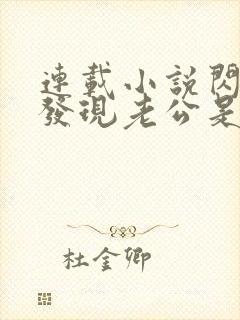 連載小說閃
發現老公是
杜金卿